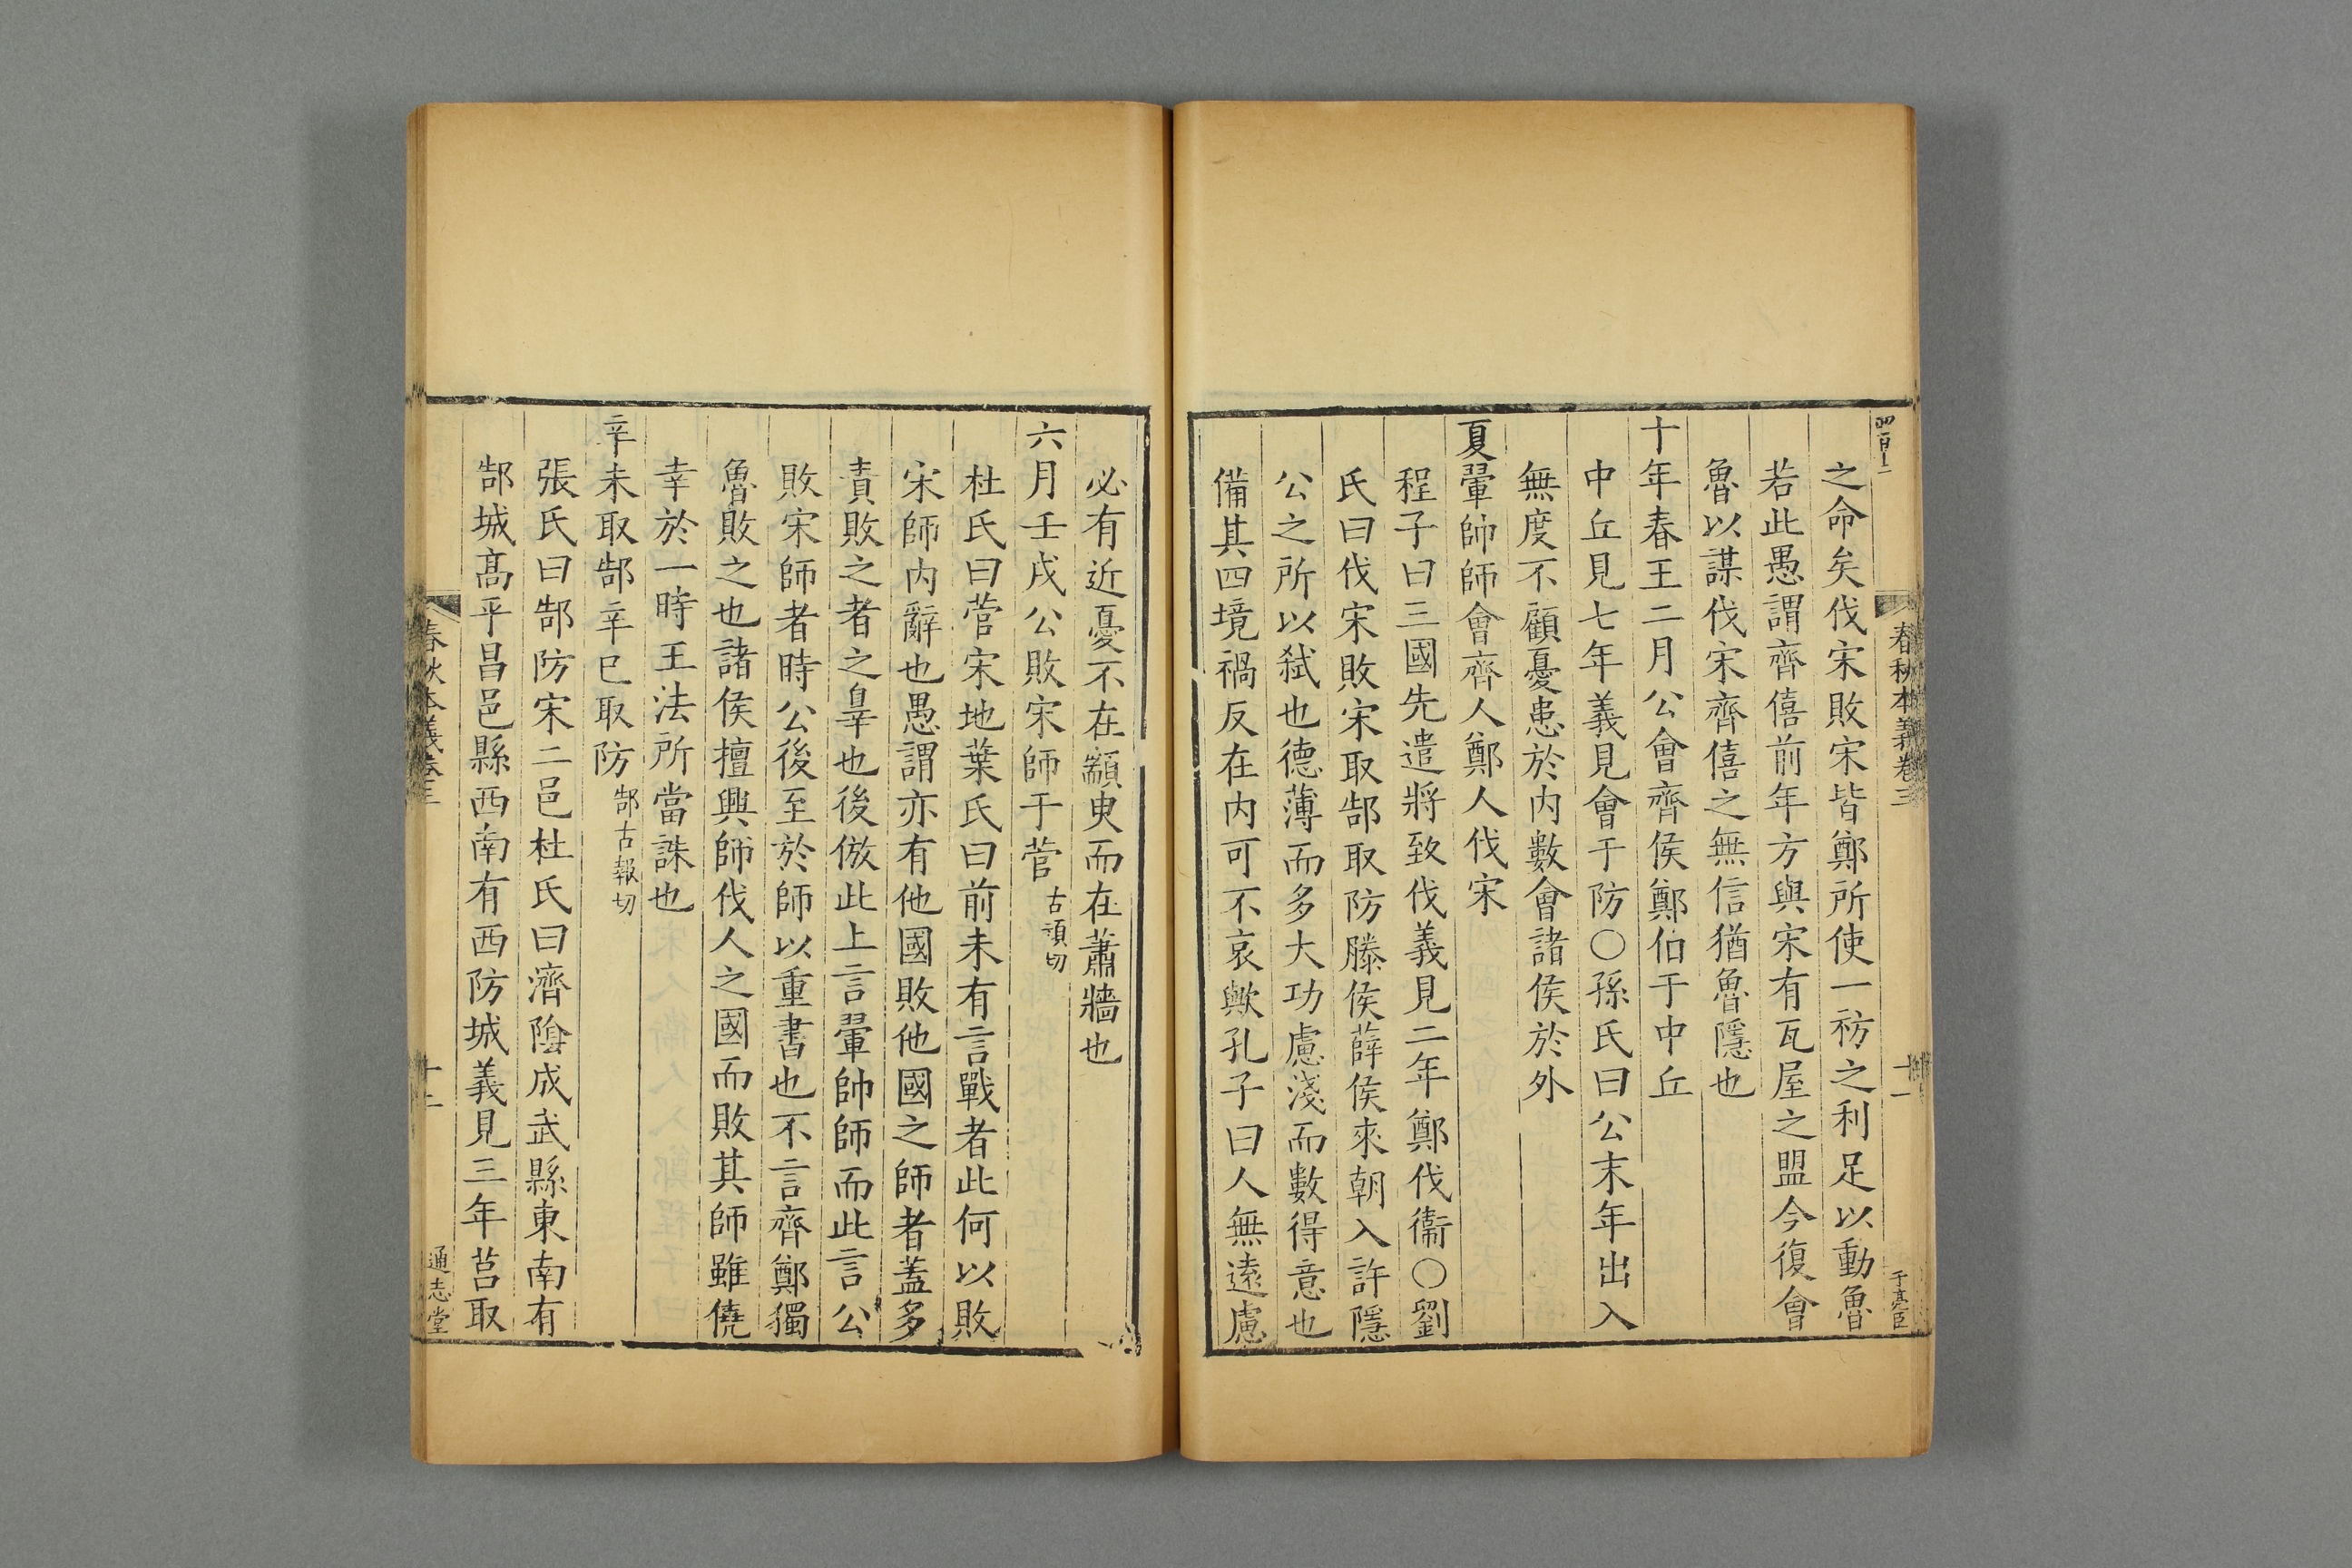 春秋本義卷三
十一
于亮臣
之命矣伐宋敗宋皆鄭所使一祊之利足以動魯
若此愚謂齊僖前年方與宋有瓦屋之盟今復會
魯以謀伐宋齊僖之無信猶魯隱也
十年春王二月公會齊侯鄭伯于中丘
中丘見七年義見會于防○孫氏曰公末年出入
無度不顧憂患於内數會諸侯於外
夏翬帥師會齊人鄭人伐宋
程子曰三國先遣將致伐義見二年鄭伐衞○劉
氏曰伐宋敗宋取郜取防滕侯薛侯來朝入許隱
公之所以弑也德薄而多大功慮淺而數得意也
備其四境禍反在内可不哀歟孔子曰人無遠慮
必有近憂不在顓㬰而在蕭牆也
六月壬戌公敗宋師于菅古頑切
杜氏曰菅宋地葉氏曰前未有言戰者此何以敗
宋師内辭也愚謂亦有他國敗他國之師者蓋多
責敗之者之辠也後倣此上言翬帥師而此言公
敗宋師者時公後至於師以重書也不言齊鄭獨
魯敗之也諸侯擅興師伐人之國而敗其師雖僥
幸於一時王法所當誅也
辛未取郜辛巳取防郜古報切
張氏曰郜防宋二邑杜氏曰濟陰成武縣東南有
郜城高平昌邑縣西南有西防城義見三年莒取
春秋本義卷三
十二
通志堂